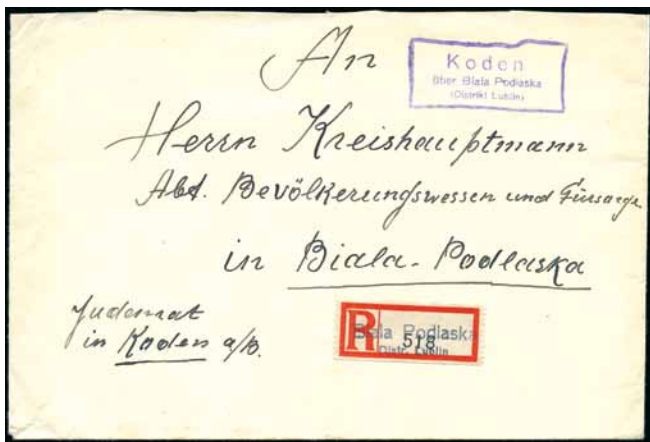 An
Koden
über Biala Podlaska
(Distrikt Lublin)
Herrn Kreishauptmann
Abt. Bevölkerungswessen und Fürsorge
in Biala-Podlaska
Judenrat
in Koden a/B.
R
Biala Podlaska
518
Distr. Lublin